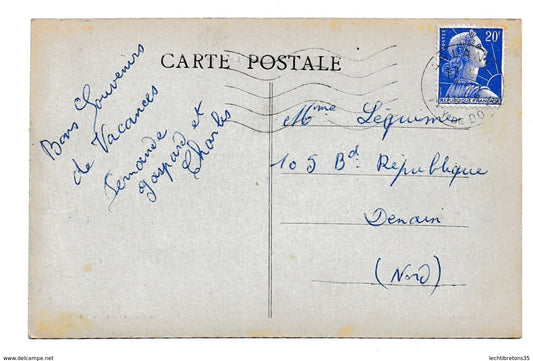 CARTE POSTALE
POSTES 20F
REPUBLIQUE FRANÇAISE
Bons Souvenirs
de Vacances
Fernande
gaspard et
Charles
Mme Légumes
105 Bd. République
Denain
(Nord)
www.delcampe.net
lechtbretons35